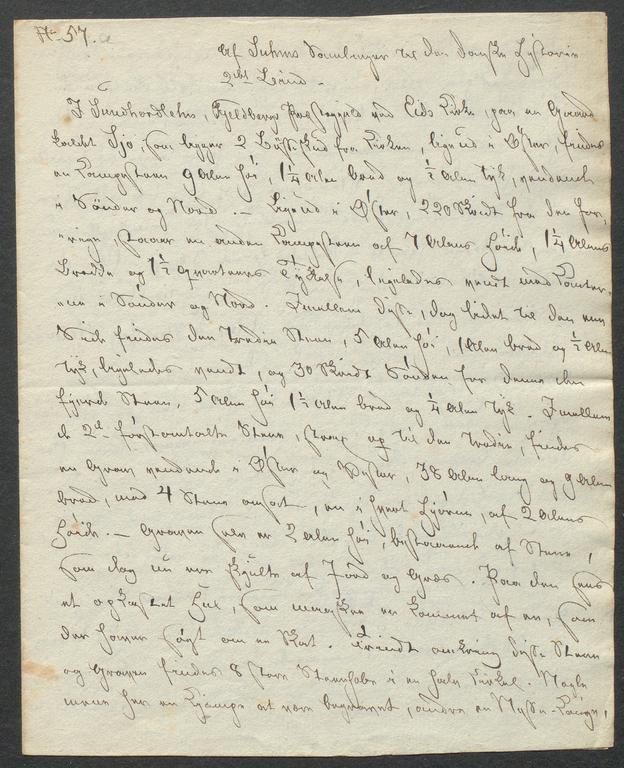 No 57.
Af Suhms Samlinger til den Danske Historie
2det Bind.
I Sundhordlehn, Fjeldbergs Præstegield ved Eids Kirke, paa en Gaard
kaldet Sjo, som ligger 2 Bøsse Skud fra Kirken, ligeud i Øster, findes
en Kampesteen 9 Alen høi, 1 1/4 Alen bred og 1/2 Alen tyk, vendende
i Sønder og Nord. — Ligeud i Øster, 220 Skridt fra den for-
rige, staaer en anden Kampesteen af 7 Alens Høide, 1 1/4 Alens
Bredde og 1 1/2 Qvarteers Tykelse, ligeledes vendt med Kanter-
ne i Sønder og Nord. Imellem disse, dog lidet til den ene
Side findes den tredie Steen, 5 Alen høi, 1 Alen bred og 1/2 Alen
tyk, ligeledes vendt, og 30 Skridt Sønden for denne den
fjerde Steen, 5 Alen høi 1 1/2 Alen bred og 1/4 Alen tyk. Imellem
de 2de førstomtalte Steene, strax op til den tredie, findes
en Grav vendende i Øster og Vester, 38 Alen lang og 9 Alen
bred, med 4 Steene omsat, en i hvert Hjørne, af 2 Alens
Høide. — Graven selv er 2 Alen høi, bestaaende af Steene,
som dog nu ere skjulte af Jord og Græs. Paa den sees
et opkastet Hul, som maaskee er kommet af en, som
der haver søgt om en Skat. Trindt omkring disse Steene
og Graven findes 8 store Steenhobe i en halv Cirkel. Nogle
mene her en Kjæmpe at være begravet, andre en Næsse-Konge,